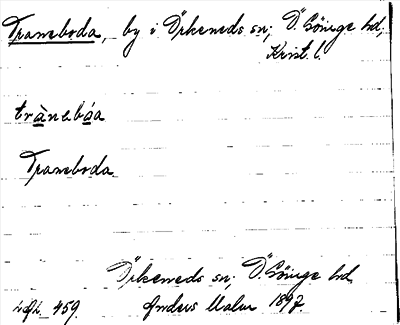 Traneboda, by i Örkeneds sn; Ö. Göinge hd,
Krist. l.
trànebáa
Traneboda
Örkeneds sn; Ö. Göinge hd
459. Anders Malm 1897.